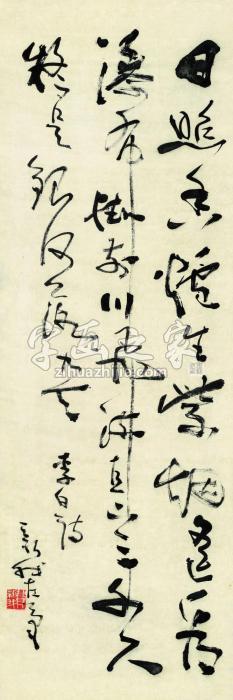 日照香爐生紫烟遥看
瀑布掛前川飛流直下三千尺
疑是銀河落九天
李白詩
字画之家
zihuazhijia.com